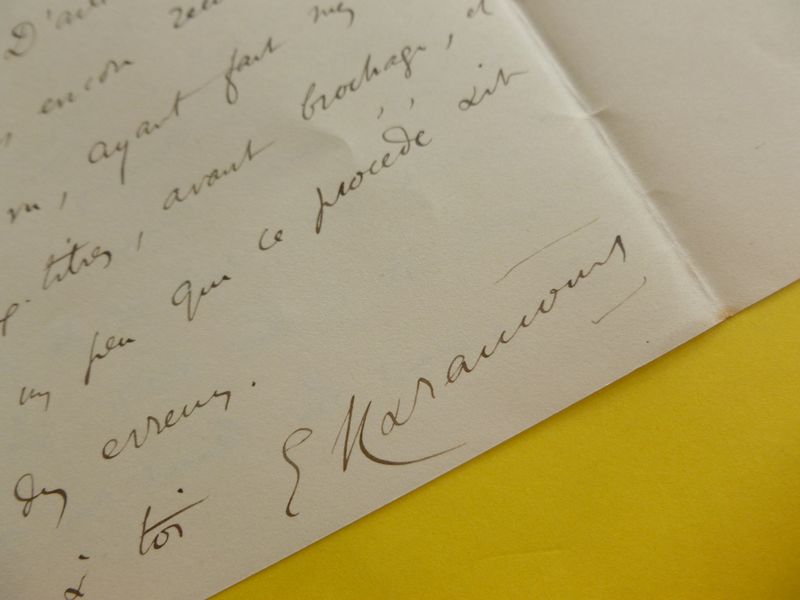 D'ail
encore
, ayant fait mes
titres, avant brochage, et
un peu que ce procédé soit
des erreurs.
à toi E Haraucourt